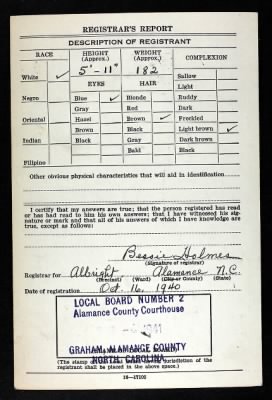 REGISTRAR'S REPORT
DESCRIPTION OF REGISTRANT
RACE HEIGHT (Approx.) WEIGHT (Approx.) COMPLEXION
5'-11" 182
White ✓ Sallow
EYES HAIR Light
Negro Blue ✓ Blonde Ruddy
Gray Red Dark
Oriental Hazel Brown ✓ Freckled
Brown Black Light brown ✓
Indian Black Gray Dark brown
Bald Black
Filipino
Other obvious physical characteristics that will aid in identification
I certify that my answers are true; that the person registered has read
or has had read to him his own answers; that I have witnessed his sig-
nature or mark and that all of his answers of which I have knowledge are
true, except as follows:
Bessie Holmes
(Signature of registrar)
Registrar for Albright Alamance N.C.
(Precinct) (Ward) (City or County) (State)
Date of registration Oct. 16, 1940
LOCAL BOARD NUMBER 2
Alamance County Courthouse
GRAHAM, ALAMANCE COUNTY
NORTH CAROLINA
(The stamp of the Local Board having jurisdiction of the
registrant shall be placed in the above space.)